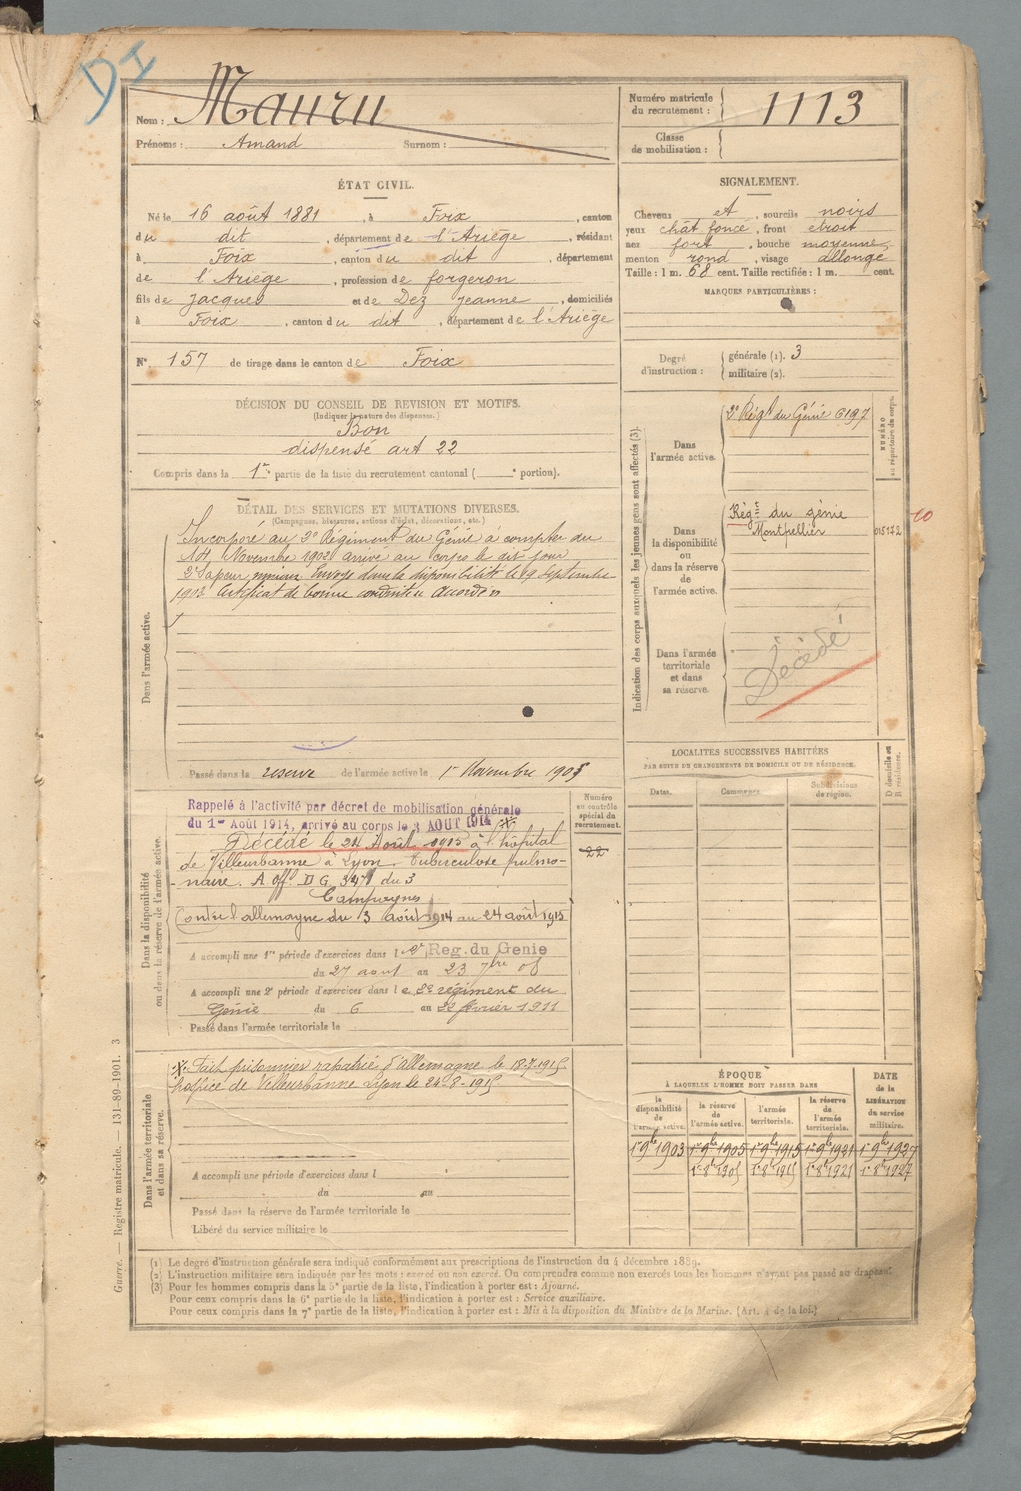 DI
Nom : Mauru
Prénoms : Amand Surnom :
Numéro matricule du recrutement : 1113
Classe de mobilisation :
ÉTAT CIVIL.
Né le 16 août 1881, à Foix, canton
du dit, département de l'Ariège, résidant
à Foix, canton du dit, département
de l'Ariège, profession de forgeron
fils de Jacques et de Dez Jeanne, domiciliés
à Foix, canton du dit, département de l'Ariège
N° 157 de tirage dans le canton de Foix
SIGNALEMENT.
Cheveux et, sourcils noirs
yeux chât foncé, front étroit
nez fort, bouche moyenne,
menton rond, visage allongé
Taille : 1 m. 68 cent. Taille rectifiée : 1 m. cent.
MARQUES PARTICULIÈRES :
Degré d'instruction :
générale (1). 3
militaire (2).
DÉCISION DU CONSEIL DE REVISION ET MOTIFS.
(Indiquer la nature des dispenses.)
Bon
dispensé art 22
Compris dans la 1re partie de la liste du recrutement cantonal ( e portion).
DÉTAIL DES SERVICES ET MUTATIONS DIVERSES.
(Campagnes, blessures, actions d'éclat, décorations, etc.)
Dans l'armée active.
Incorporé au 2e Régiment du Génie à compter du
14 Novembre 1902 arrivé au corps le dit jour
2e Sapeur mineur Envoyé dans la disponibilité le 19 Septembre
1903 Certificat de bonne conduite accordé
Passé dans la réserve de l'armée active le 1er Novembre 1905
Indication des corps auxquels les jeunes gens sont affectés (3).
NUMÉRO au répertoire du corps.
Dans l'armée active.
2e Régt du Génie 6197
Dans la disponibilité ou dans la réserve de l'armée active.
Régt du génie
Montpellier 015172
10
Dans l'armée territoriale et dans sa réserve.
Décédé
LOCALITÉS SUCCESSIVES HABITÉES
PAR SUITE DE CHANGEMENTS DE DOMICILE OU DE RÉSIDENCE.
Dates.
Communes.
Subdivisions de région.
D domicile ou R résidence.
Dans la disponibilité ou dans la réserve de l'armée active.
Numéro au contrôle spécial du recrutement.
22
Rappelé à l'activité par décret de mobilisation générale
du 1er Août 1914, arrivé au corps le 3 AOUT 1914
Décédé le 24 Août 1915 à l'hôpital
de Villeurbanne à Lyon. Tuberculose pulmo-
-naire. A off. D G du 3
Campagnes
Contre l'allemagne du 3 août 1914 au 24 août 1915
A accompli une 1re période d'exercices dans le 2e Reg. du Genie
du 27 aout au 23 7bre 08
A accompli une 2e période d'exercices dans le 2e régiment du
Génie du 6 au 22 février 1911
Passé dans l'armée territoriale le
Dans l'armée territoriale et dans sa réserve.
Fait prisonnier rapatrié d'Allemagne le 18-7-1915
hospice de Villeurbanne Lyon le 24-8-1915
A accompli une période d'exercices dans l
du au
Passé dans la réserve de l'armée territoriale le
Libéré du service militaire le
ÉPOQUE
À LAQUELLE L'HOMME DOIT PASSER DANS
la disponibilité de l'armée active.
la réserve de l'armée active.
l'armée territoriale.
la réserve de l'armée territoriale.
DATE de la LIBÉRATION du service militaire.
1er 9bre 1903 1er 9bre 1905 1er 9bre 1915 1er 9bre 1921 1er 9bre 1927
1er 8bre 1905 1er 8bre 1915 1er 8bre 1921 1er 8bre 1927
(1) Le degré d'instruction générale sera indiqué conformément aux prescriptions de l'instruction du 4 décembre 1889.
(2) L'instruction militaire sera indiquée par les mots : exercé ou non exercé. On comprendra comme non exercés tous les hommes n'ayant pas passé au drapeau.
(3) Pour les hommes compris dans la 5e partie de la liste, l'indication à porter est : Ajourné.
Pour ceux compris dans la 6e partie de la liste, l'indication à porter est : Service auxiliaire.
Pour ceux compris dans la 7e partie de la liste, l'indication à porter est : Mis à la disposition du Ministre de la Marine. (Art. 4 de la loi.)
Guerre. — Registre matricule. — 131-89-1901. 3